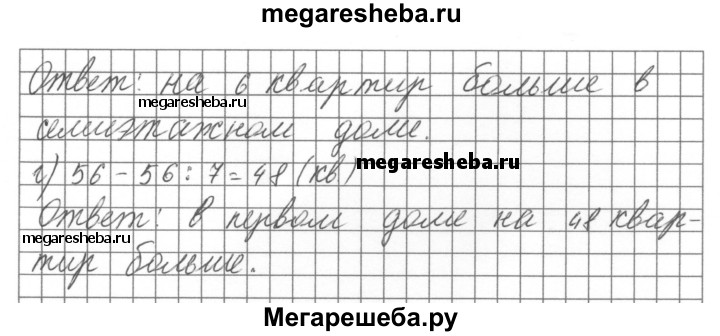 megaresheba.ru
Ответ: на 6 квартир больше в
megaresheba.ru
семиэтажном доме.
г) 56 - 56 : 7 = 48 (кв)
megaresheba.ru
Ответ: в первом доме на 48 квар-
megaresheba.ru
тир больше.
Мегарешеба.ру